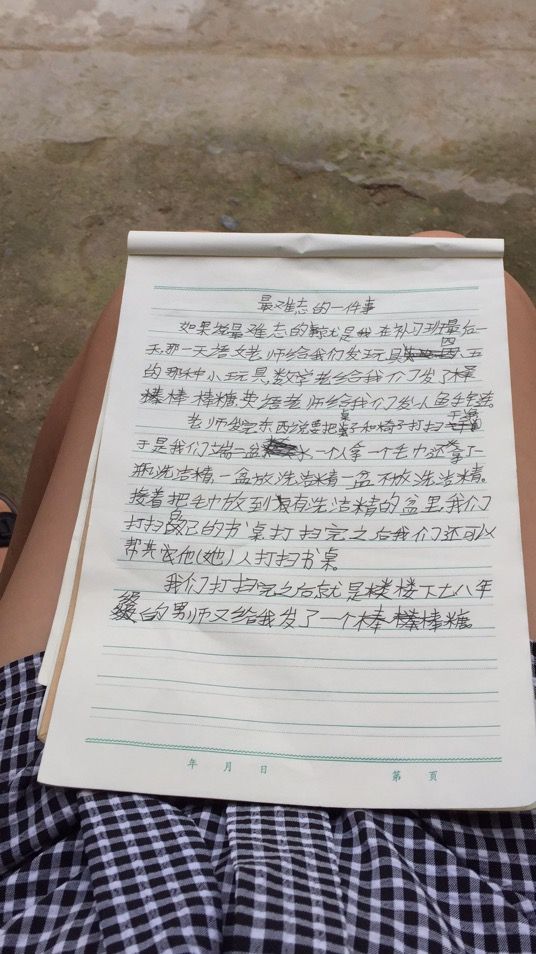 最难忘的一件事
如果说最难忘的就是我在补习班最后一
天,那一天语文老师给我们发玩具四、五
的那种小玩具,数学老给我们发了棒
棒棒糖英语老师给我们发人鱼手链。
老师发完东西说要把桌子和椅子打扫干净
于是我们端一盆水一个人拿一个毛巾还拿了一
瓶洗洁精一盆放洗洁精一盆不放洗洁精。
接着把毛巾放到有洗洁精的盆里,我们
打扫自己的书桌打扫完之后我们还可以
帮其它他(她)人打扫书桌。
我们打扫完之后就是楼楼下七八年
级的男师又给我发了一个棒棒棒糖。
年 月 日 第 页